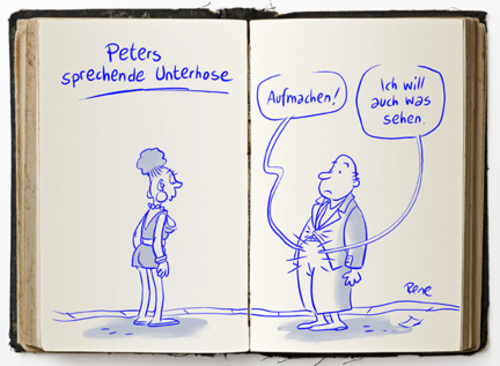 Peters
sprechende Unterhose
Aufmachen!
Ich will
auch was
sehen.
Rene